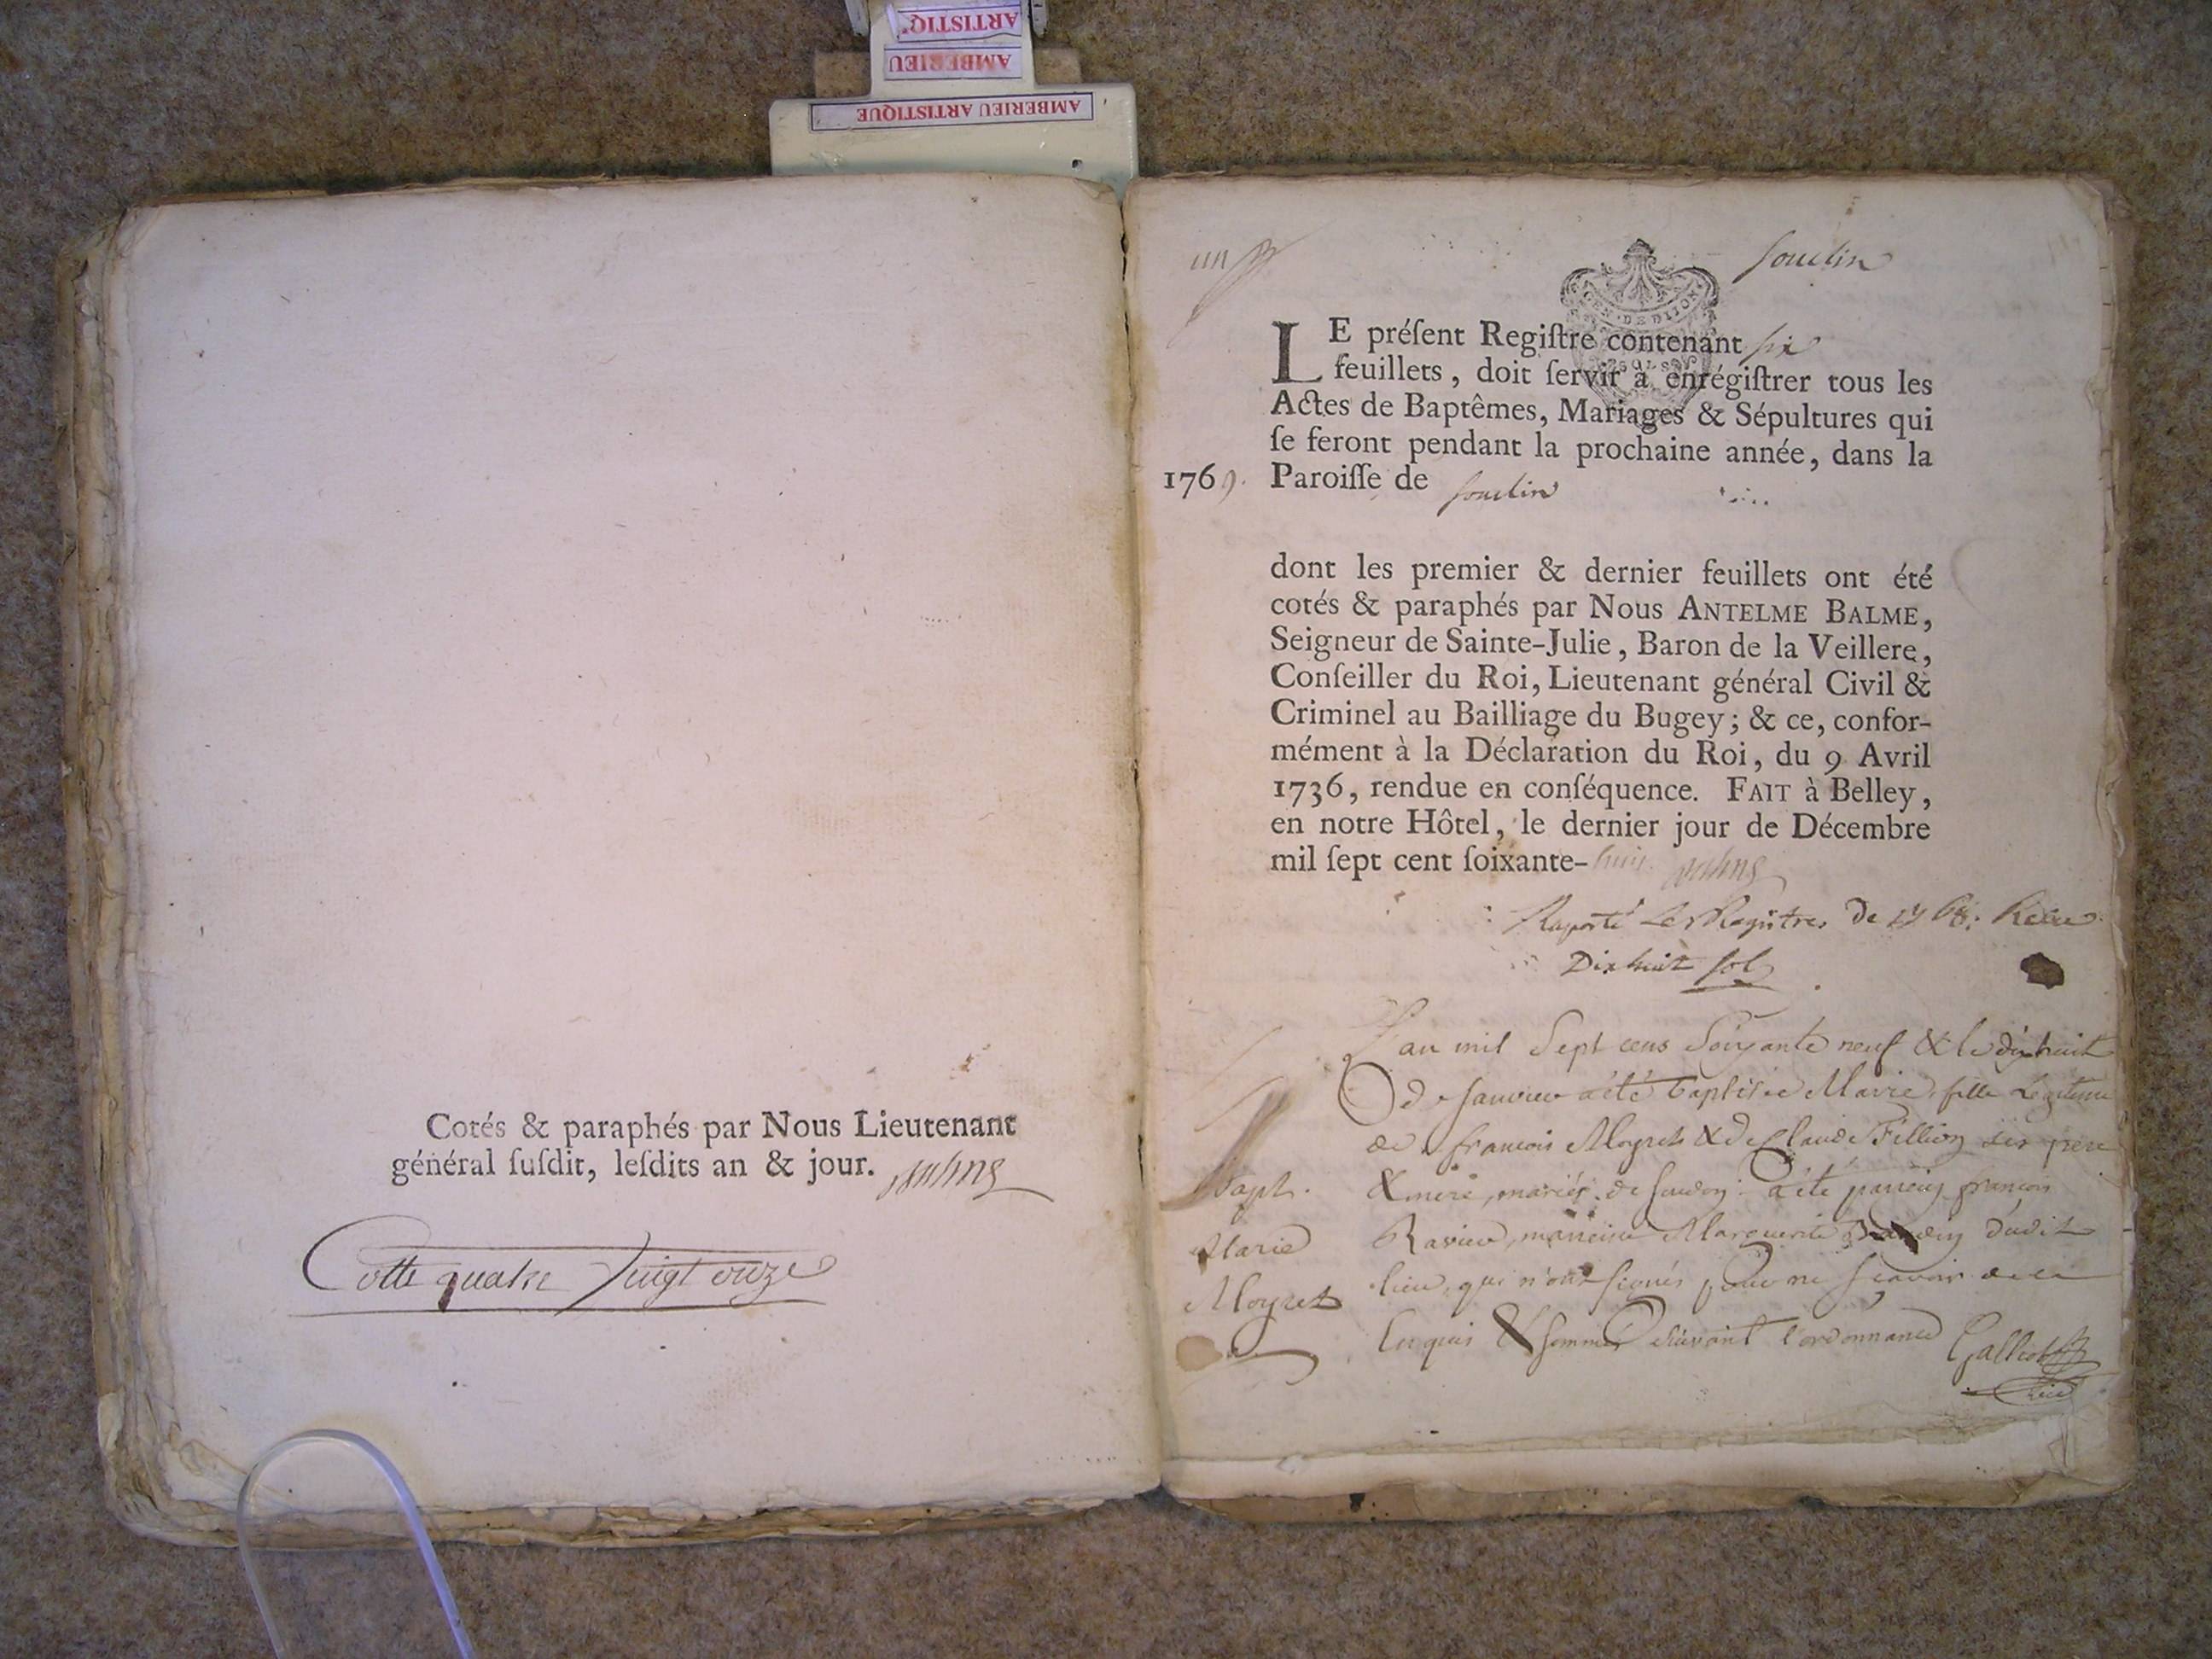 ARTISTIQ'
AMBERIEU
AMBERIEU ARTISTIQUE
Cotés & paraphés par Nous Lieutenant
général ſuſdit, leſdits an & jour.
Cotte quatre Vingt onze
un
Soudin
GEN·DE DIJON
LE préſent Regiſtre contenant six
feuillets, doit ſervir à enrégiſtrer tous les
Actes de Baptêmes, Mariages & Sépultures qui
ſe feront pendant la prochaine année, dans la
1769. Paroiſſe de Soudin
dont les premier & dernier feuillets ont été
cotés & paraphés par Nous ANTELME BALME,
Seigneur de Sainte-Julie, Baron de la Veillere,
Conſeiller du Roi, Lieutenant général Civil &
Criminel au Bailliage du Bugey; & ce, confor-
mément à la Déclaration du Roi, du 9 Avril
1736, rendue en conſéquence. FAIT à Belley,
en notre Hôtel, le dernier jour de Décembre
mil ſept cent ſoixante-huit
Raporté Les Registres de 1768. Reçu
Dix huit sols
Bapt.
Marie
Moyret
L'an mil Sept cens Soixante neuf & le dixhuit
de Janvier a été baptisée Marie, fille Legitime
de françois Moyret & de Claude Fillion ses père
& mère, mariés de Soudon. a été parrein françois
Ravier, marreine Marguerite dudit
lieu, qui n'ont signés pour ne sçavoir de ce
Enquis & sommés suivant l'ordonnance Galliot